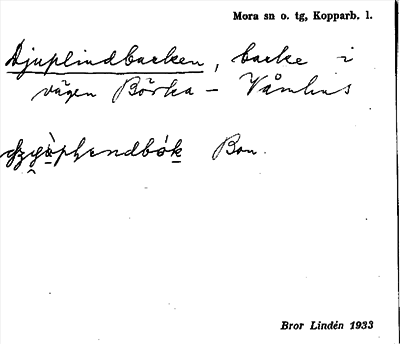 Mora sn o. tg, Kopparb. l.
Djuplindbacken, backe i
vägen Börka – Våmhus
Bon.
Bror Lindén 1933